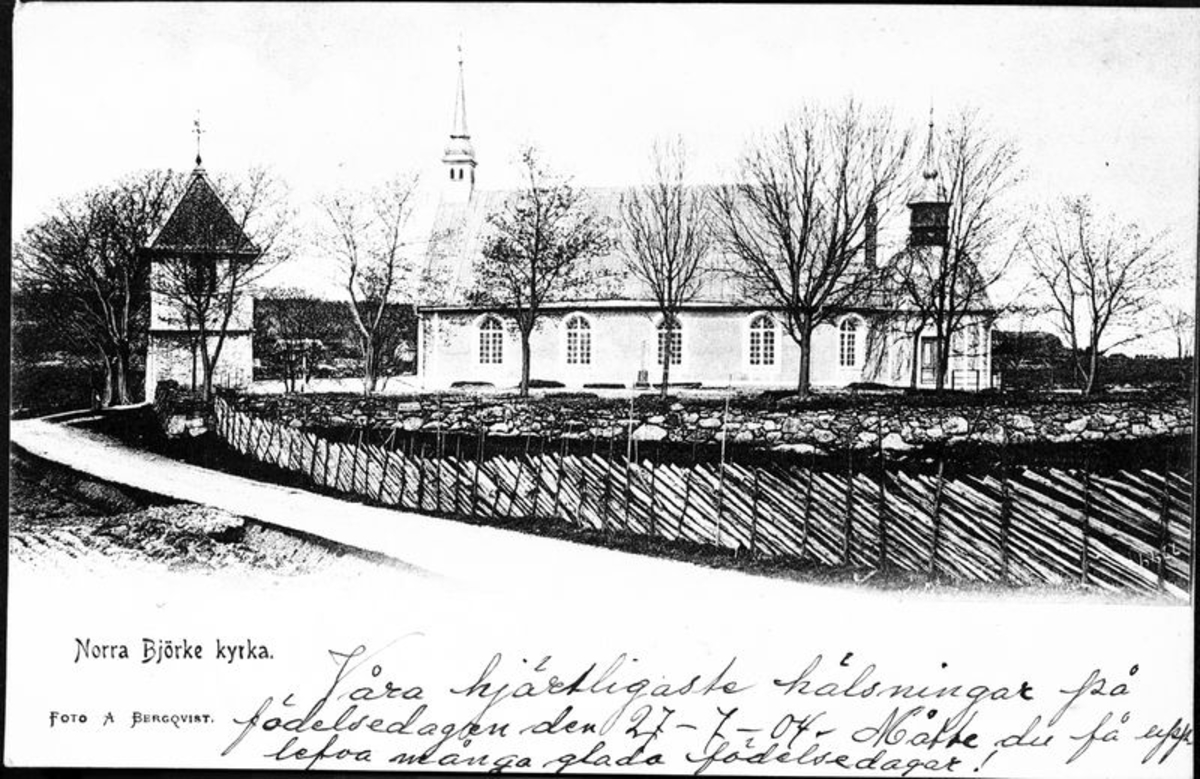 Norra Björke kyrka.
Foto A Bergqvist.
Våra hjärtligaste hälsningar på
födelsedagen den 27-7-04. Måtte du få upp
lefva många glada födelsedagar!